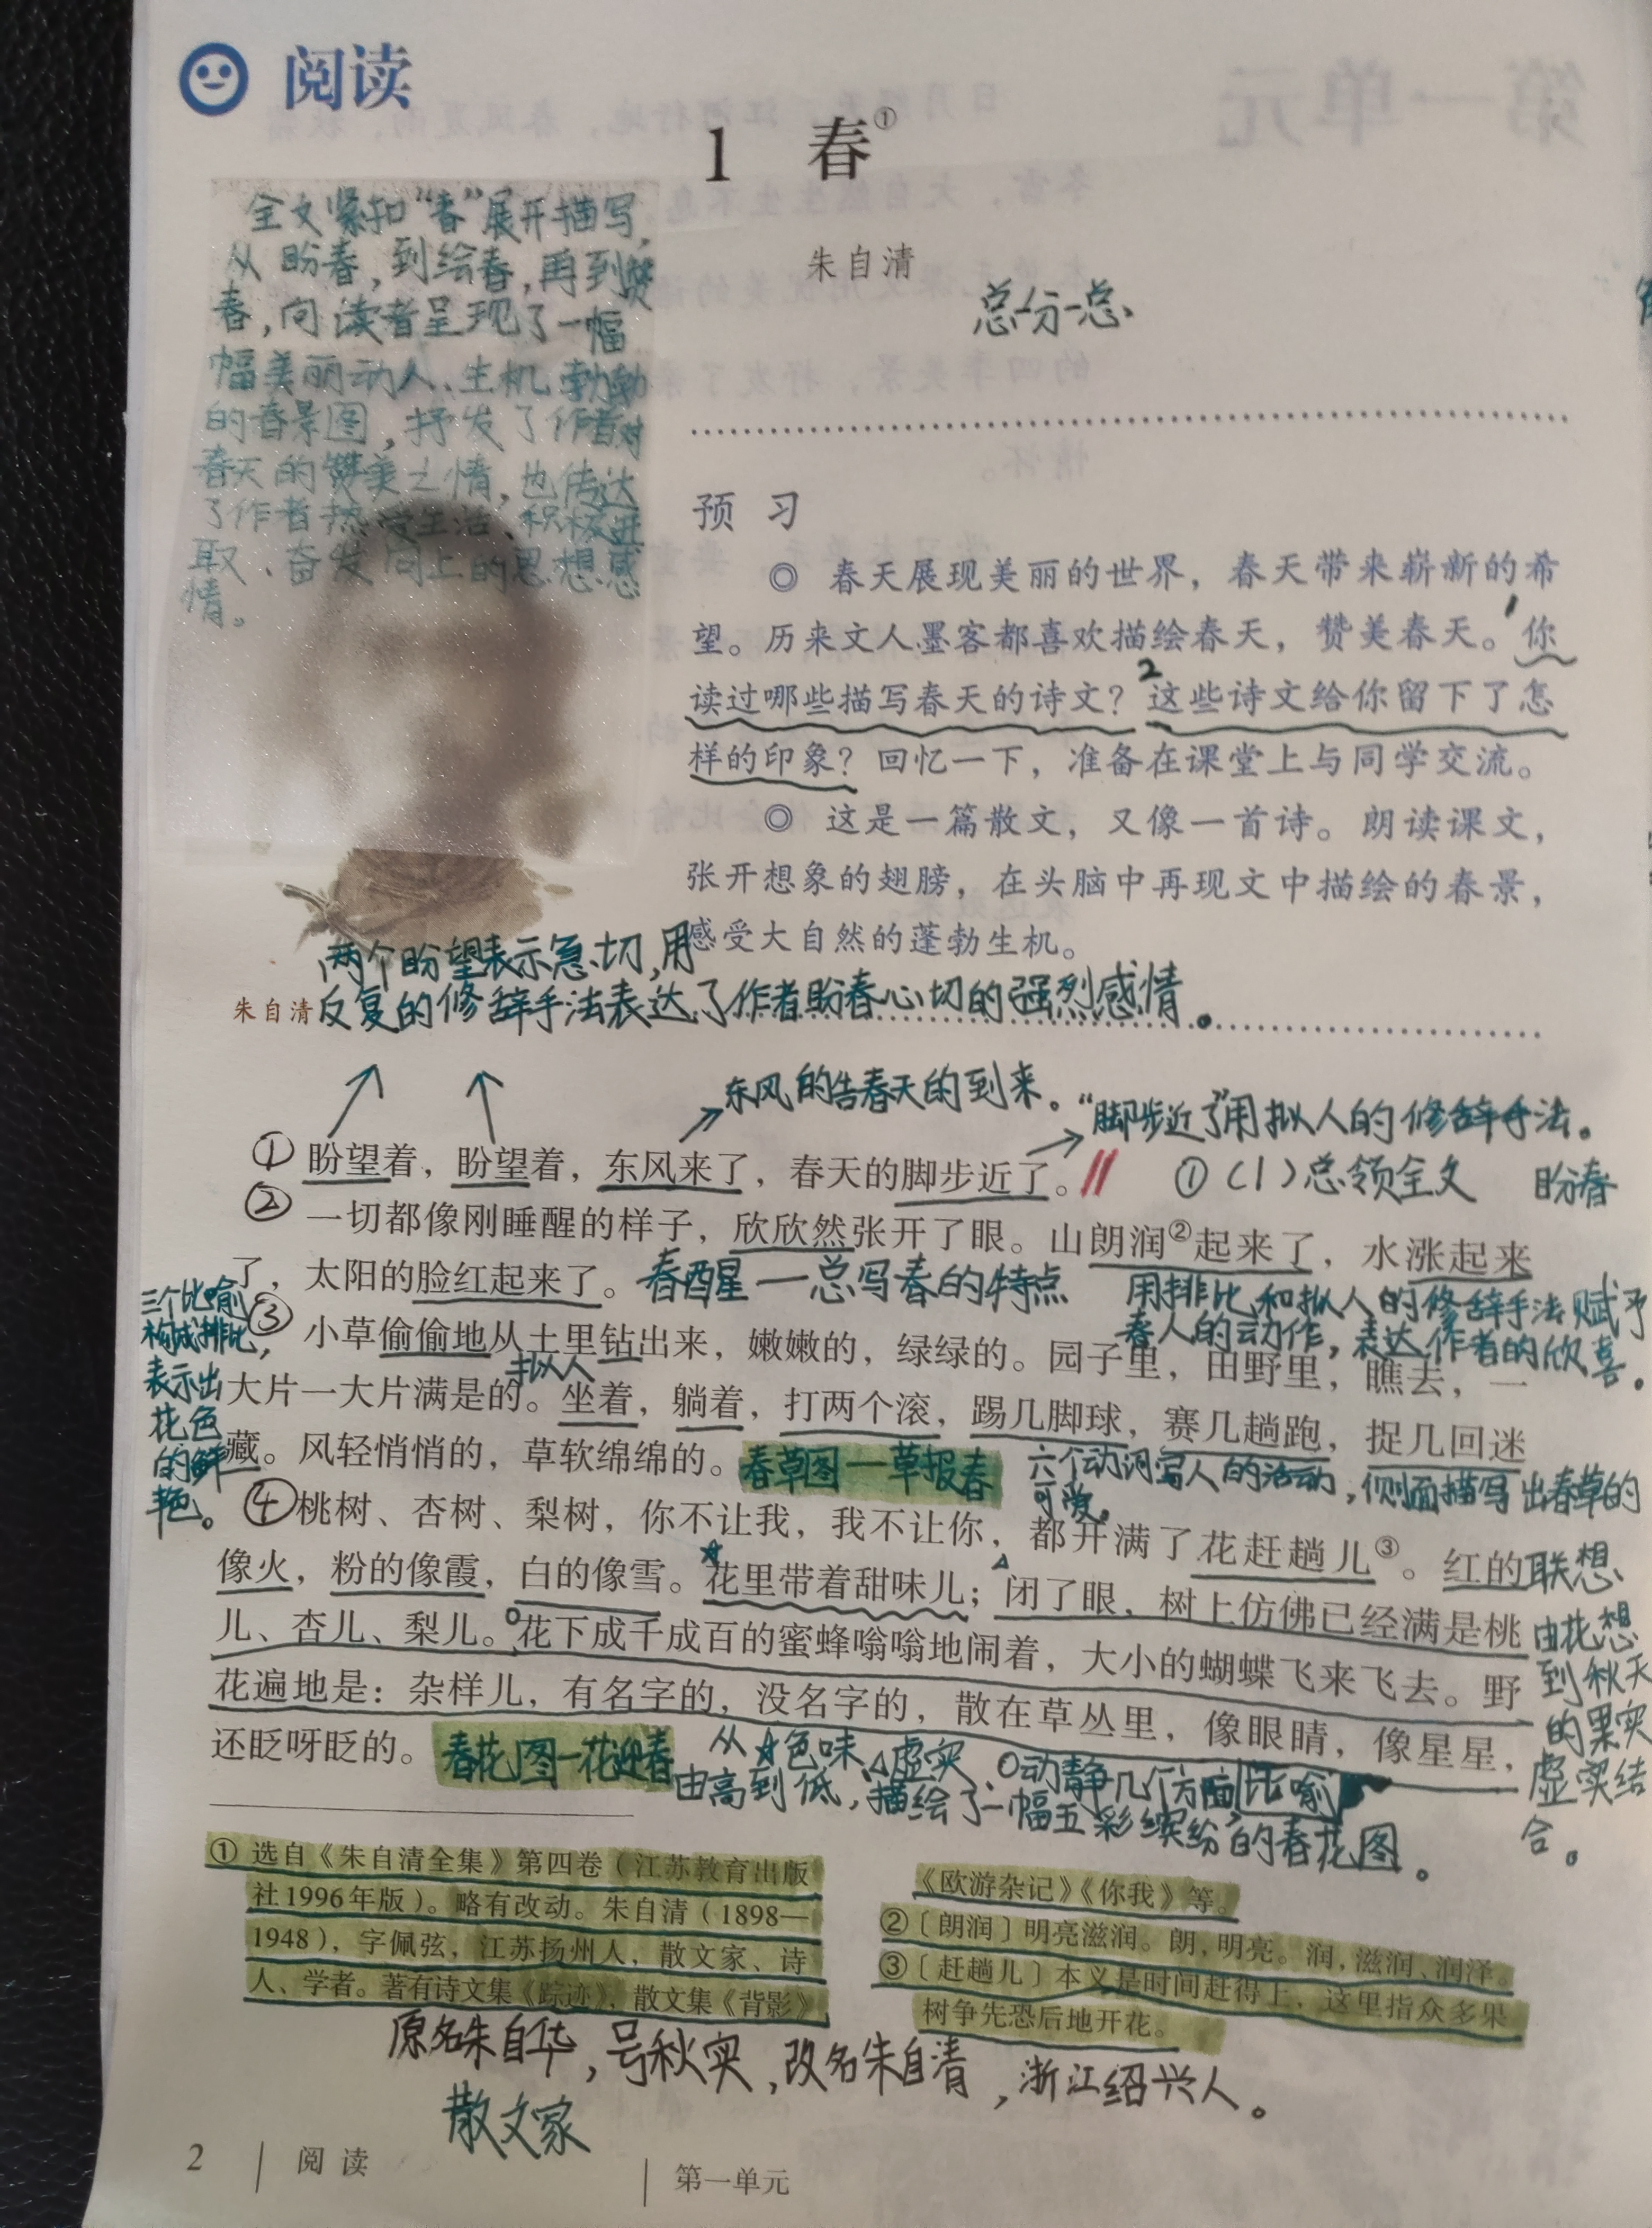 阅读
1 春①
朱自清
总一分一总
全文紧扣“春”展开描写,
从盼春,到绘春,再到赞
春,向读者呈现了一幅
幅美丽动人、生机勃勃
的春景图,抒发了作者对
春天的赞美之情,也传达
了作者热爱生活、积极进
取、奋发向上的思想感
情。
预 习
◎ 春天展现美丽的世界，春天带来崭新的希
望。历来文人墨客都喜欢描绘春天，赞美春天。你
读过哪些描写春天的诗文？2这些诗文给你留下了怎
样的印象？回忆一下，准备在课堂上与同学交流。
◎ 这是一篇散文，又像一首诗。朗读课文，
张开想象的翅膀，在头脑中再现文中描绘的春景，
感受大自然的蓬勃生机。
朱自清
两个盼望表示急切,用
反复的修辞手法表达了作者盼春心切的强烈感情。
东风的告春天的到来。
“脚步近了”用拟人的修辞手法。
①盼望着，盼望着，东风来了，春天的脚步近了。
①(1)总领全文 盼春
②一切都像刚睡醒的样子，欣欣然张开了眼。山朗润②起来了，水涨起来
了，太阳的脸红起来了。
春醒一总写春的特点
用排比和拟人的修辞手法赋予
春人的动作,表达作者的欣喜。
三个比喻
构成排比,
表示出
花色
的鲜
艳。
③小草偷偷地从土里钻出来，嫩嫩的，绿绿的。园子里，田野里，瞧去，一
拟人
大片一大片满是的。坐着，躺着，打两个滚，踢几脚球，赛几趟跑，捉几回迷
藏。风轻悄悄的，草软绵绵的。
春草图一草报春
六个动词写人的活动,侧面描写出春草的
可爱。
④桃树、杏树、梨树，你不让我，我不让你，都开满了花赶趟儿③。红的
像火，粉的像霞，白的像雪。花里带着甜味儿；闭了眼，树上仿佛已经满是桃
儿、杏儿、梨儿。花下成千成百的蜜蜂嗡嗡地闹着，大小的蝴蝶飞来飞去。野
花遍地是：杂样儿，有名字的，没名字的，散在草丛里，像眼睛，像星星，
还眨呀眨的。
联想
由花想
到秋天
的果实
虚实结
合。
春花图一花迎春
从☆色味、△虚实、○动静几个方面比喻
由高到低,描绘了一幅五彩缤纷的春花图。
① 选自《朱自清全集》第四卷（江苏教育出版
社1996年版）。略有改动。朱自清（1898—
1948），字佩弦，江苏扬州人，散文家、诗
人、学者。著有诗文集《踪迹》，散文集《背影》
《欧游杂记》《你我》等。
②〔朗润〕明亮滋润。朗，明亮。润，滋润、润泽。
③〔赶趟儿〕本义是时间赶得上，这里指众多果
树争先恐后地开花。
原名朱自华,号秋实,改名朱自清,浙江绍兴人。
散文家
2 阅读 第一单元